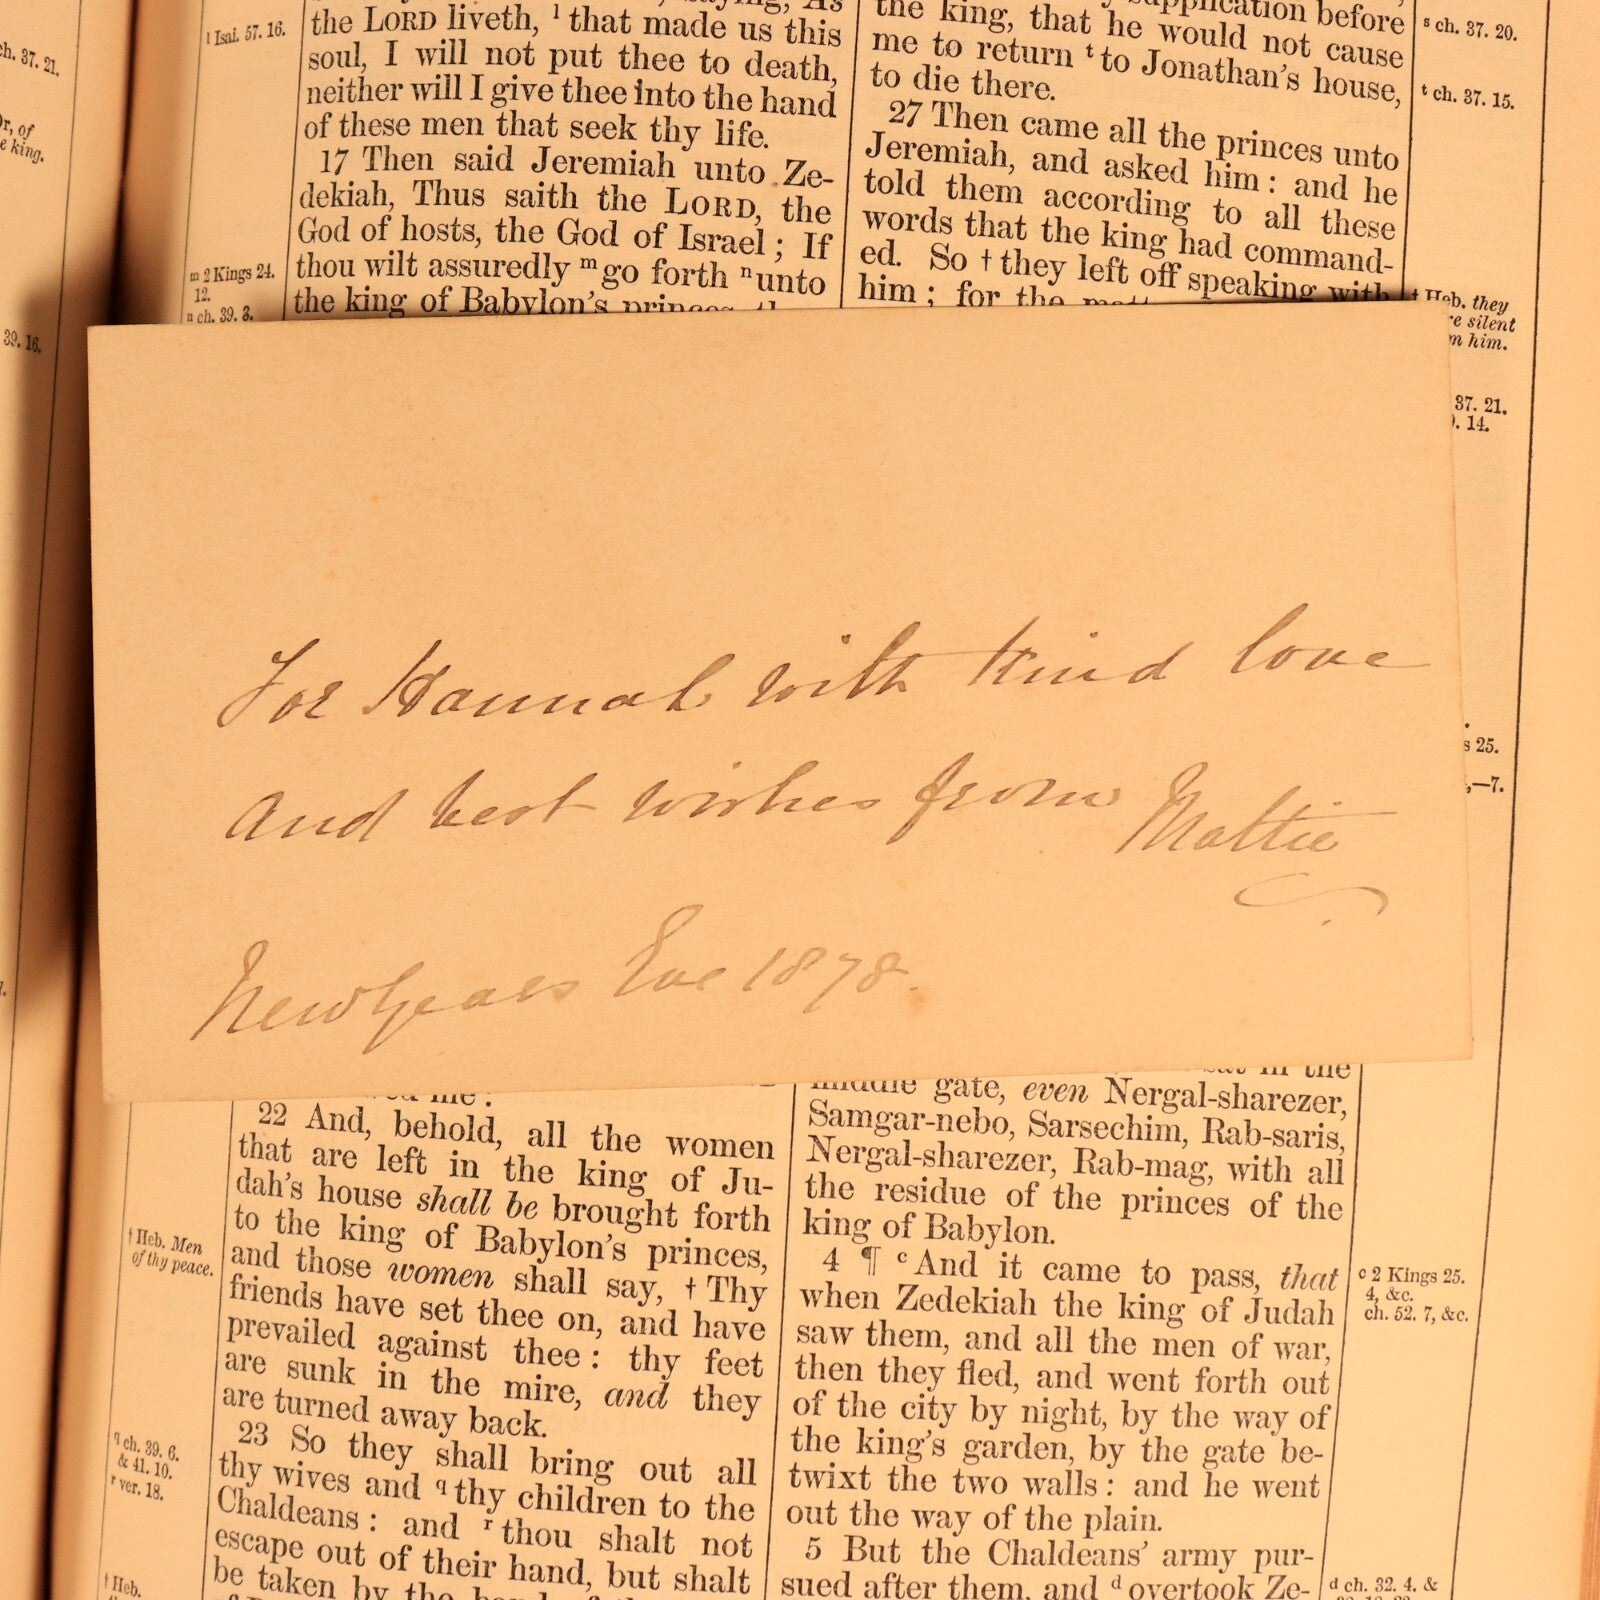 ch. 37. 21.
Or, of
e king.
39. 16.
l Isai. 57. 16.
m 2 Kings 24.
12.
n ch. 39. 3.
the LORD liveth, l that made us this
soul, I will not put thee to death,
neither will I give thee into the hand
of these men that seek thy life.
17 Then said Jeremiah unto Ze-
dekiah, Thus saith the LORD, the
God of hosts, the God of Israel; If
thou wilt assuredly m go forth n unto
the king of Babylon's princes
supplication before
the king, that he would not cause
me to return t to Jonathan's house,
to die there.
27 Then came all the princes unto
Jeremiah, and asked him: and he
told them according to all these
words that the king had command-
ed. So † they left off speaking with
him; for the
s ch. 37. 20.
t ch. 37. 15.
† Heb. they
re silent
m him.
37. 21.
. 14.
s 25.
,—7.
For Hannah with kind love
and best wishes from Mattie
New Years Eve 1878.
† Heb. Men
of thy peace.
q ch. 39. 6.
& 41. 10.
r ver. 18.
† Heb.
me:
22 And, behold, all the women
that are left in the king of Ju-
dah's house shall be brought forth
to the king of Babylon's princes,
and those women shall say, † Thy
friends have set thee on, and have
prevailed against thee: thy feet
are sunk in the mire, and they
are turned away back.
23 So they shall bring out all
thy wives and q thy children to the
Chaldeans: and r thou shalt not
escape out of their hand, but shalt
be taken by the hand of
in the
middle gate, even Nergal-sharezer,
Samgar-nebo, Sarsechim, Rab-saris,
Nergal-sharezer, Rab-mag, with all
the residue of the princes of the
king of Babylon.
4 ¶ c And it came to pass, that
when Zedekiah the king of Judah
saw them, and all the men of war,
then they fled, and went forth out
of the city by night, by the way of
the king's garden, by the gate be-
twixt the two walls: and he went
out the way of the plain.
5 But the Chaldeans' army pur-
sued after them, and d overtook Ze-
c 2 Kings 25.
4, &c.
ch. 52. 7, &c.
d ch. 32. 4. &